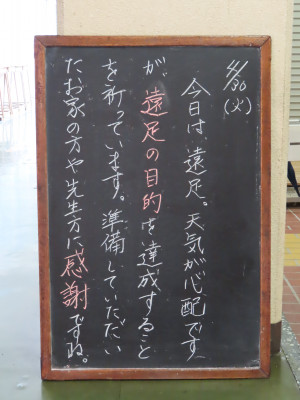 4/30(火)
今日は、遠足。天気が心配です
が、遠足の目的を達成すること
を祈っています。準備していただい
たお家の方や先生方に感謝ですね。